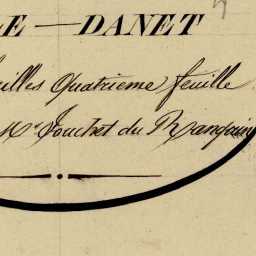 LE — DANET
uilles Quatrieme feuille
Mr Jouchet du Rangain